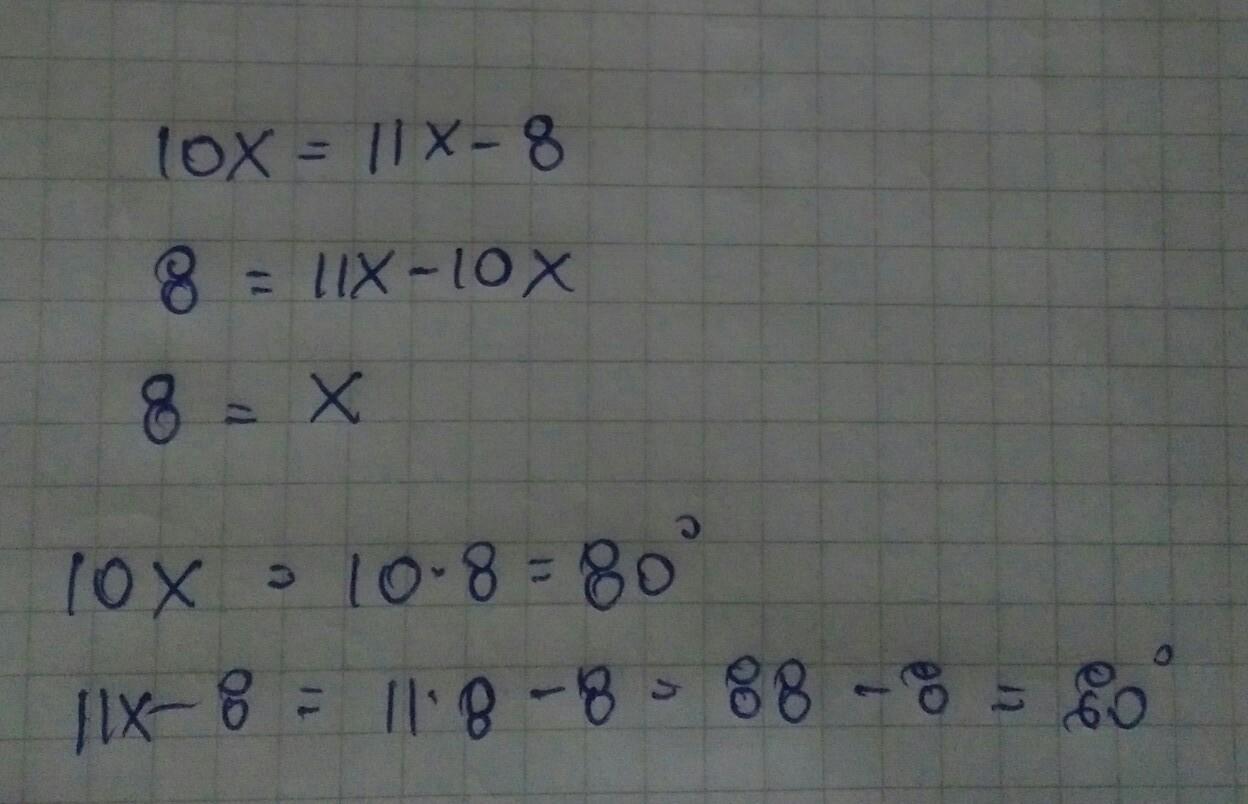 10x = 11x - 8
8 = 11x - 10x
8 = x
10x = 10·8 = 80°
11x - 8 = 11·8 - 8 = 88 - 8 = 80°